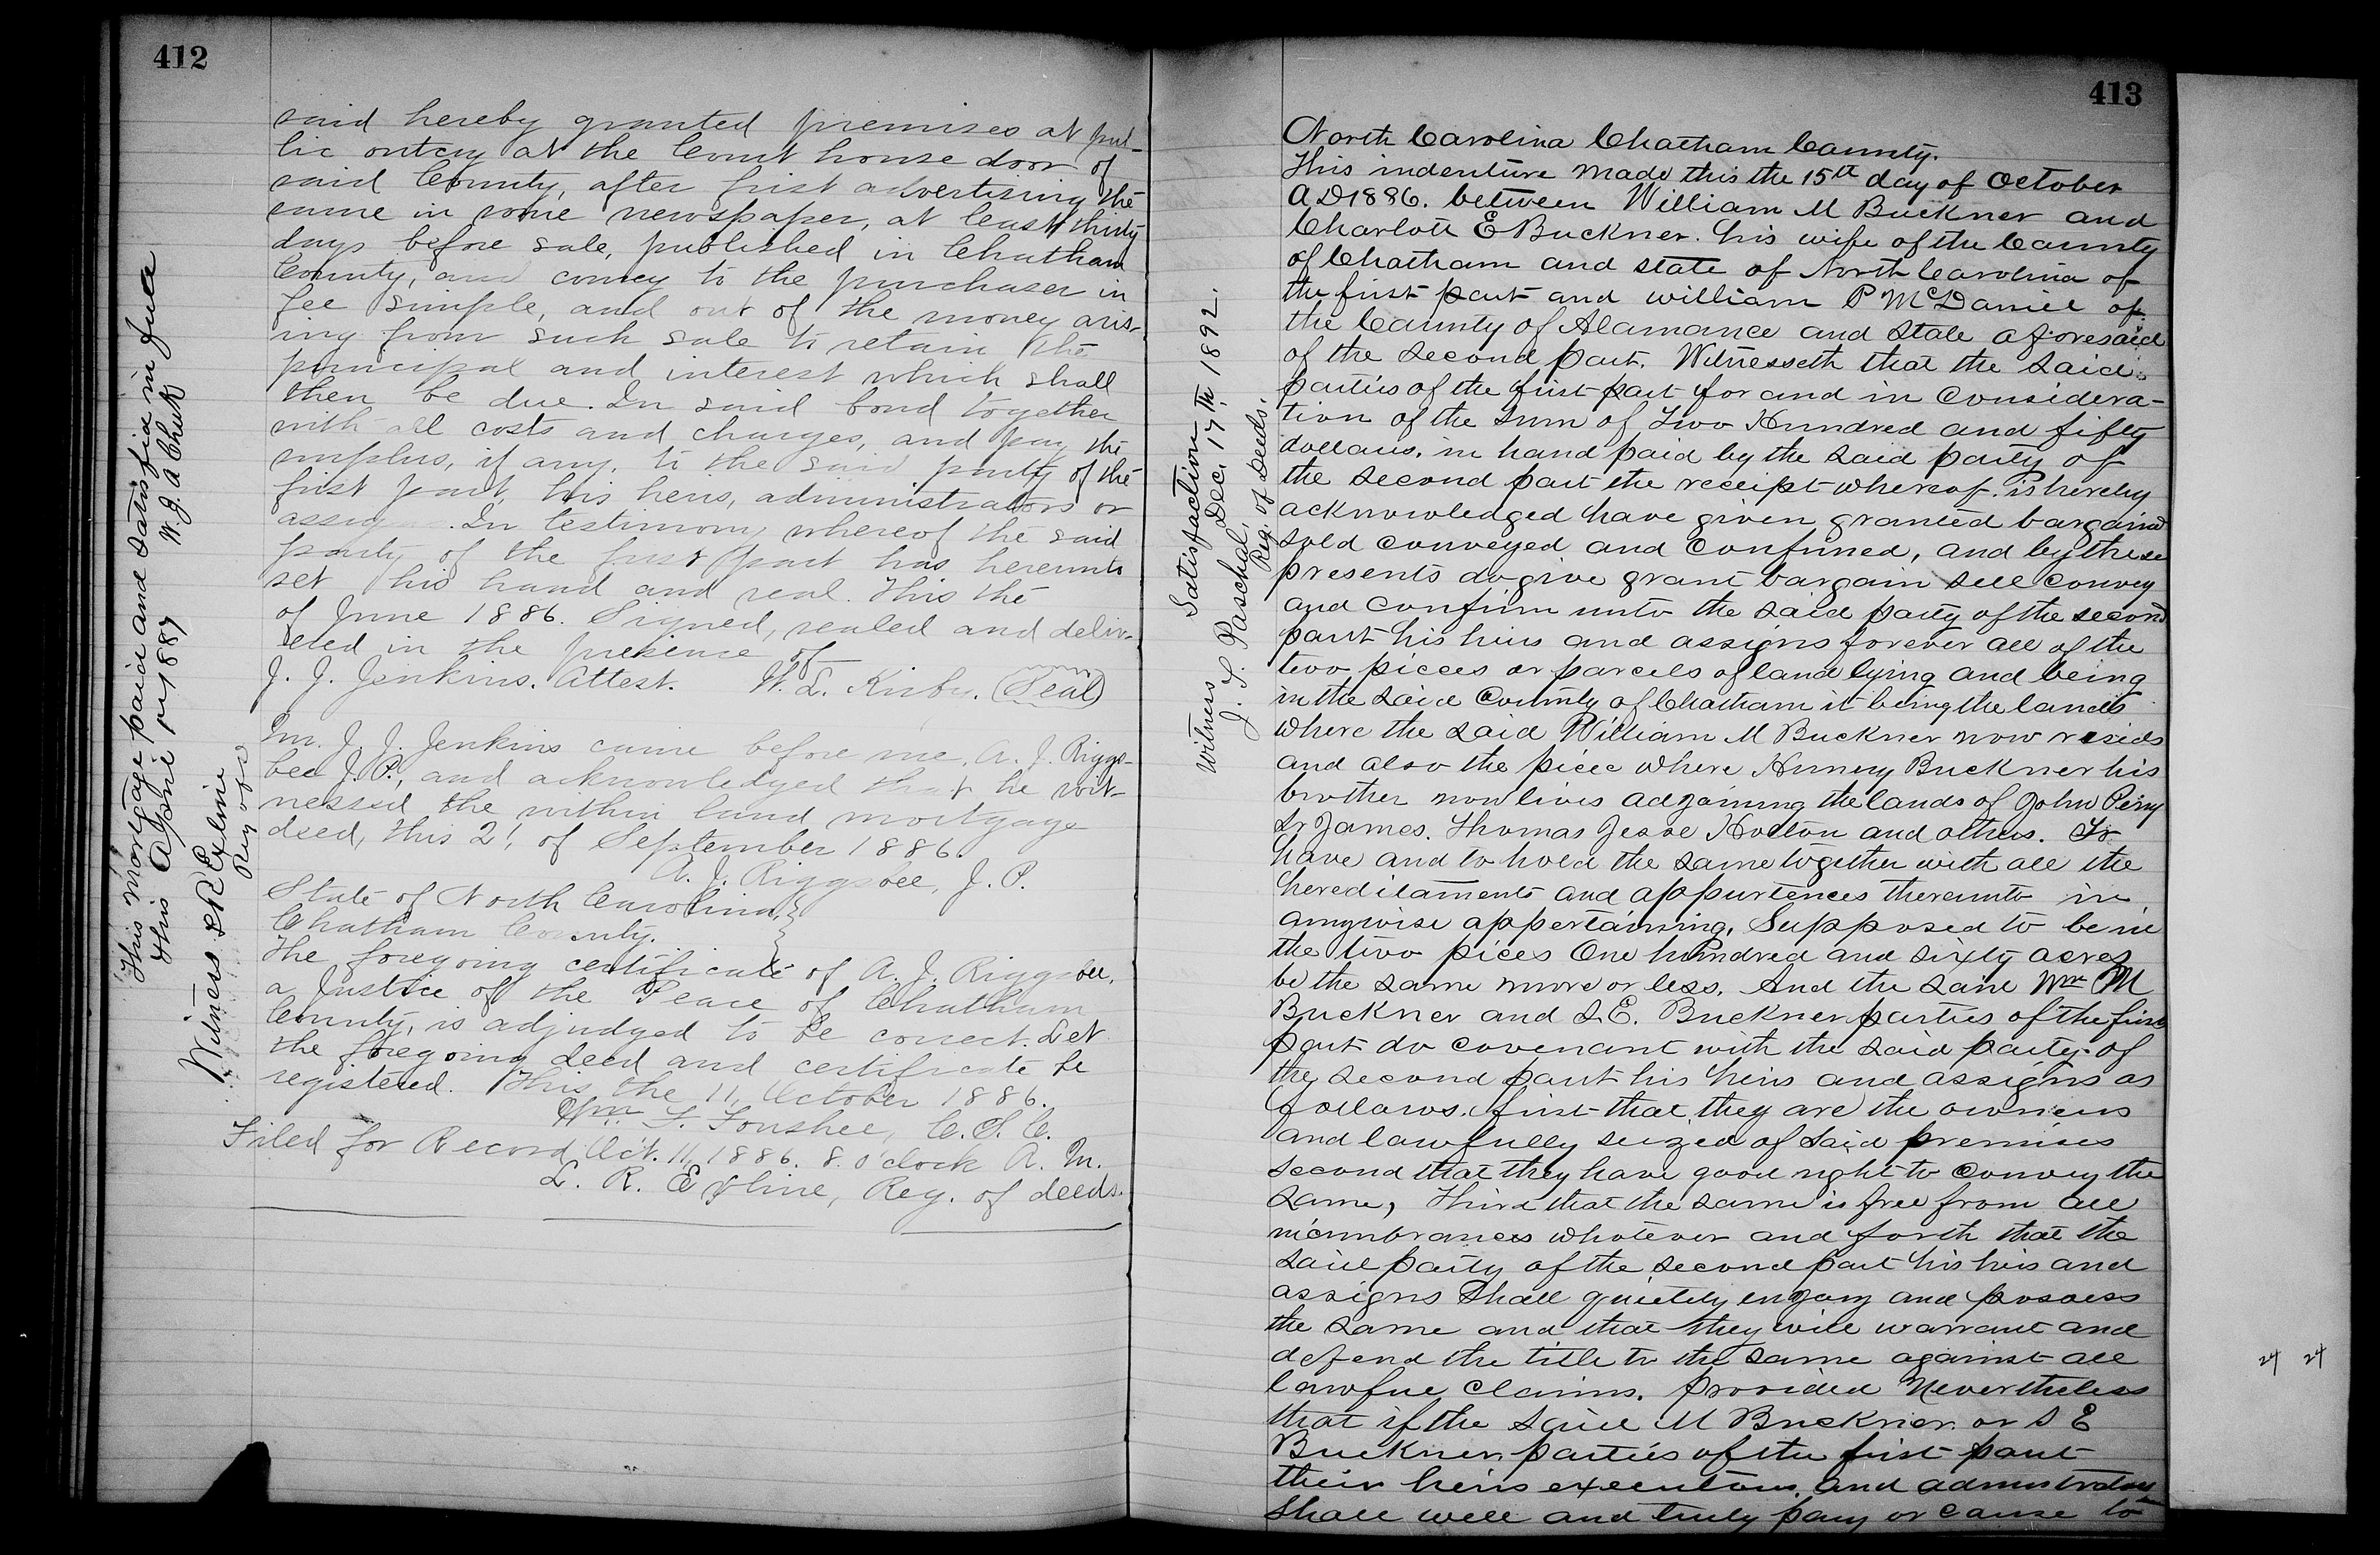 412
said hereby granted premises at pub-
lic outcry at the Court house door of
said County, after first advertising the
same in some newspaper, at least thirty
days before sale, published in Chatham
County, and convey to the purchaser in
fee simple, and out of the money aris-
ing from such sale to retain the
principal and interest which shall
then be due. In said bond together
with all costs and charges, and pay the
surplus, if any, to the said party of the
first part, his heirs, administrators or
assigns. In testimony whereof the said
party of the first part has hereunto
set his hand and seal. This the
of June 1886. Signed, sealed and deliv-
ered in the presence of
J. J. Jenkins. Attest. W. L. Kirby. (Seal)
Mr. J. J. Jenkins came before me, A. J. Riggs-
bee J. P., and acknowledged that he wit-
nessed the within land mortgage
deed, this 21 of September 1886.
A. J. Riggsbee, J. P.
State of North Carolina,
Chatham County.
The foregoing certificate of A. J. Riggsbee,
a Justice of the Peace of Chatham
County, is adjudged to be correct. Let
the foregoing deed and certificate be
registered. This the 11, October 1886.
Wm. F. Foushee, C. S. C.
Filed for Record Oct. 11, 1886. 8. o'clock A. M.
L. R. Exline, Reg. of deeds.
This mortgage paid and satisfied in full
this April 1887
W. J. A Cheek
Witness L R Exline
Reg of d
413
North Carolina Chatham County.
This indenture made this the 15th day of October
A D 1886. between William M Buckner and
Charlott E Buckner. his wife of the County
of Chatham and state of North Carolina of
the first part and william P McDaniel of
the County of Alamance and State aforesaid
of the second part. Witnesseth that the said
parties of the first part for and in Considera-
tion of the sum of Two Hundred and fifty
dollars. in hand paid by the said party of
the second part the receipt whereof. is hereby
acknowledged have given granted bargaind
sold conveyed and Confirmed, and by these
presents do give grant bargain sell convey
and confirm unto the said party of the second
part his heirs and assigns forever all of the
two pieces or parcels of land lying and being
in the said County of Chatham it being the lands
where the said William M Buckner now resids
and also the piece where Hennry Buckner his
brother now lives adjoining the lands of John Perry
Sr James. Thomas Jesse Horton and others. To
have and to hold the same together with all the
hereditaments and appurtences thereunto in
anywise appertaining. Supposed to be in
the two pices One hundred and sixty acres
be the same more or less. And the said Wm M
Buckner and S. E. Buckner parties of the first
part do covenant with the said party of
the second part his heirs and assigns as
follows. first that they are the owners
and lawfully seized of said premises
second that they have good right to Convey the
same, Third that the same is free from all
incumbrances whatever and forth that the
said party of the second part his heirs and
assigns Shall quietly enjoy and possess
the same and that they will warrant and
defend the title to the same against all
lawful Claims. provided Nevertheless
that if the said M Buckner. or S E
Buckner parties of the first part
their heirs executors. and admistrators
Shall well and truly pay or cause to
Satisfaction
Dec, 17th 1892.
Witness
J. S. Paschal,
Reg. of deeds.
24 24